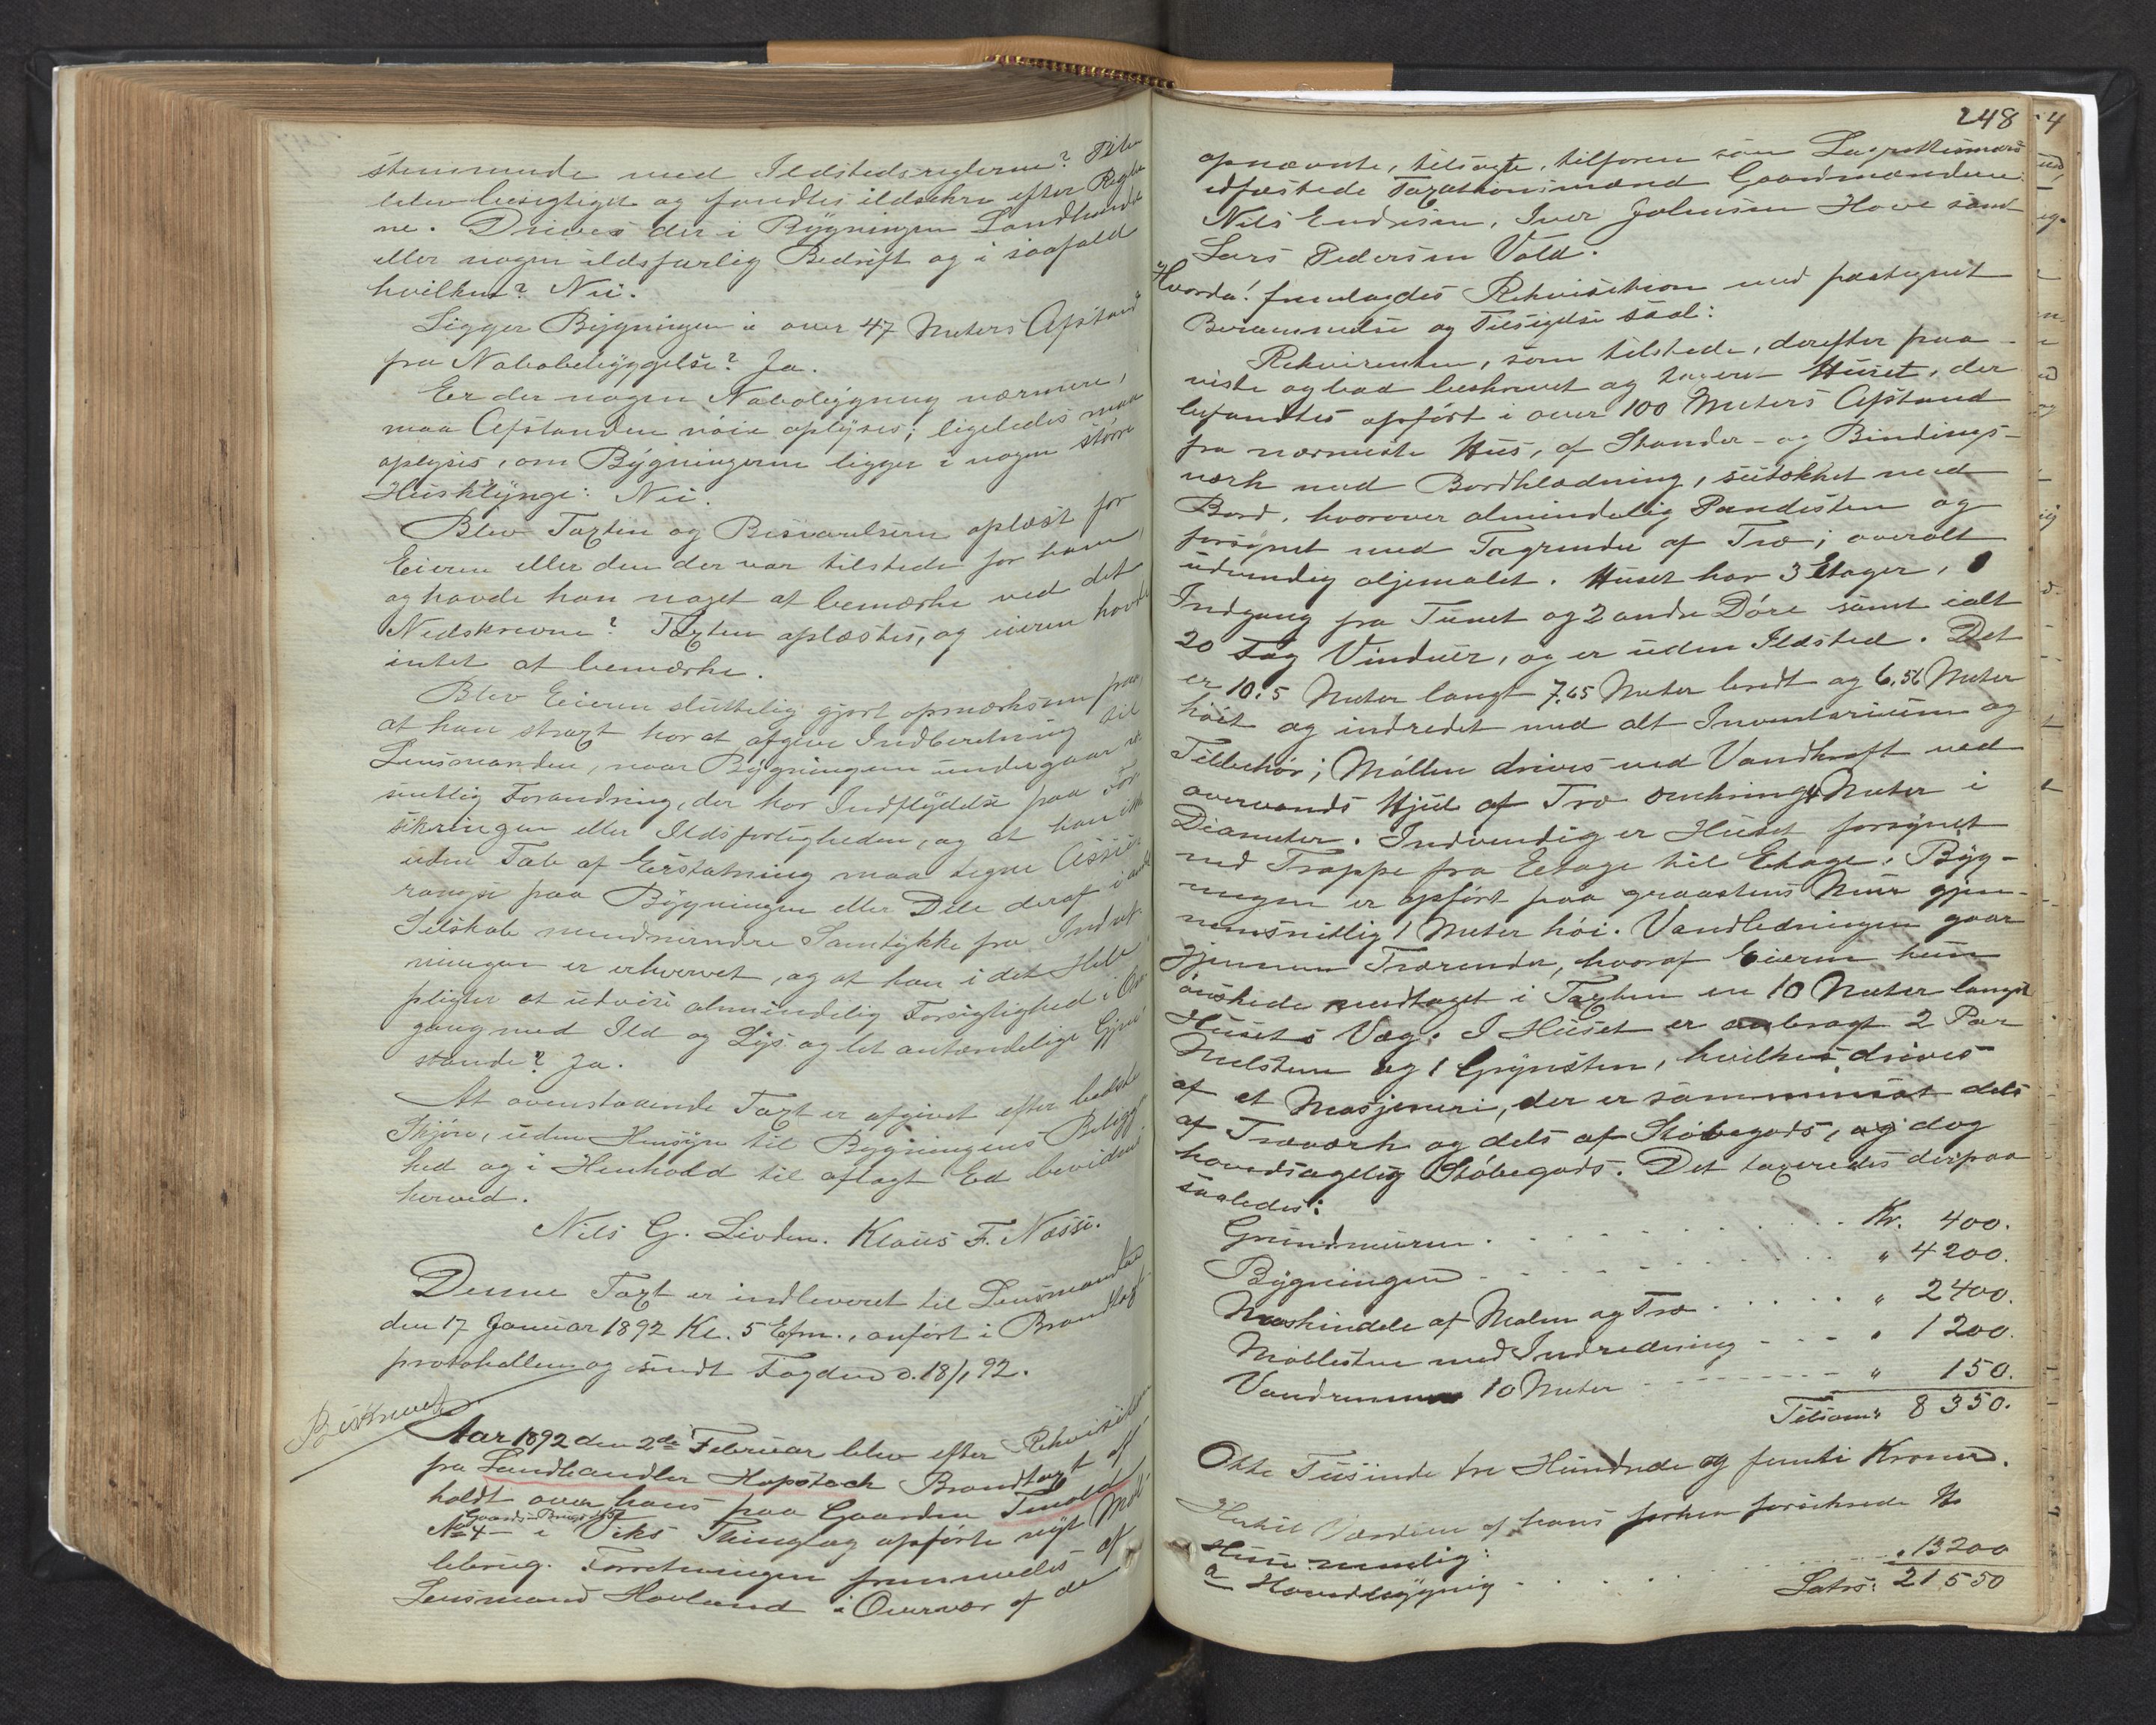 stemmende med Ildstedsreglerne?
blev besigtiget og fandtes ildsikre efter Regler
ne. Drives der i Bygningen Landhandel
eller nogen ildsfarlig Bedrift og i saafald
hvilken? Nei.
Ligger Bygningen i over 47 Meters Afstand
fra Nabobebyggelse? Ja.
Er der nogen Nabobygning nærmere,
maa Afstanden nöie oplyses; ligeledes maa
oplyses, om Bygningerne ligger i nogen större
Husklynge: Nei.
Blev Taxten og Besvarelserne oplæst for
Eieren eller den der var tilstede for ham,
og havde han noget at bemærke ved det
Nedskrevne? Taxten oplæstes, og eieren havde
intet at bemærke.
Blev Eieren sluttelig gjort opmærksom paa,
at han straxt har at afgive Indberetning til
Lensmanden, naar Bygningen undergaar væ
sentlig Forandring, der har Indflydelse paa For
sikringen eller Ildsfarligheden, og at han ikke
uden Tab af Erstatning maa tegne Assu
rance paa Bygningen eller Dele deraf i andet
Selskab medmindre Samtykke fra Indret
ningen er erhvervet, og at han i det Hele
pligter at udvise almindelig Forsigtighed i Om
gang med Ild og Lys og let antændelige Gjen
stande? Ja.
At ovenstaaende Taxt er afgivet efter bedste
Skjön, uden Hensyn til Bygningens Beligg
hed og i Henhold til aflagt Ed bevidnes
herved.
Nils G. Livden. Klaus F. Næsse.
Denne Taxt er indleveret til Lensmanden
den 17 Januar 1892 Kl. 5 Efm., anfört i Brandtaxt
protokollen og sendt Fogden d. 18/1 92.
Beskrevet
Aar 1892 den 2de Februar blev efter Rekvisition
fra Landhandler Hopstock Brandtaxt af
holdt over hans paa Gaarden Tenold
Gaards-
No 4 i Viks Thinglag opförte nyt Möl
lebrug. Forretningen fremmedes af
Lensmand Hovland i Overvær af de
248
opnævnte, tilsagte, tilforen som Lagrettesmænd
edfæstede Taxationsmænd Gaardmændene
Nils Endresen, Iver Johnsen Hove samt
Lars Pedersen Vold.
Hvorda! fremlagdes Rekvisition med paategnet
Berammelse og Tilsigelse saal:
Rekvirenten, som tilstede, derefter paa-
viste og bad beskrevet og taxeret Huset, der
befandtes opfört i over 100 Meters Afstand
fra nærmeste Hus, af Stander- og Bindings-
værk med Bordklædning, sutækket med
Bord, hvorover almindelig Pandesten og
forsynet med Tagrender af Træ; overalt
udvendig oljemalet. Huset har 3 Etager, 1
Indgang fra Tunet og 2 andre Döre samt ialt
20 Fag Vinduer, og er uden Ildsted. Det
er 10.5 Meter langt 7.65 Meter bredt og 6.56 Meter
höit og indredet med alt Inventarium og
Tilbehör; Möllen drives ved Vandkraft med
overvands Hjul af Træ omkring 4 Meter i
Diameter. Indvendig er Huset forsynet
med Trappe fra Etage til Etage. Byg-
ningen er opfört paa graastens Mur gjen-
nemsnitlig 1 Meter höi. Vandledningen gaar
gjennem Trærender, hvoraf Eieren kun
önskede medtaget i Taxten en 10 Meter langst
Husets Væg. I Huset er anbragt 2 Par
Melstene og 1 Grynsten, hvilke drives
af et Masjeneri, der er sammensat dels
af Træværk og dels af Stöbegods, og dog
hovedsagelig Stöbegods. Det taxeredes derpaa
saaledes:
Grundmuren . . . . Kr. 400.
Bygningen . . . . " 4200.
Maskindele af Malm og Træ . . . . " 2400.
Möllestene med Indredning - - - " 1200.
Vandrenner 10 Meter - - - " 150.
Tilsam: 8350.
Otte Tusinde tre Hundrede og femti Kroner.
Hertil Værdien af hans forhen forsikrede
Huse nemlig:
a Hovedbygning . . . . " 13200
Latus: 21550